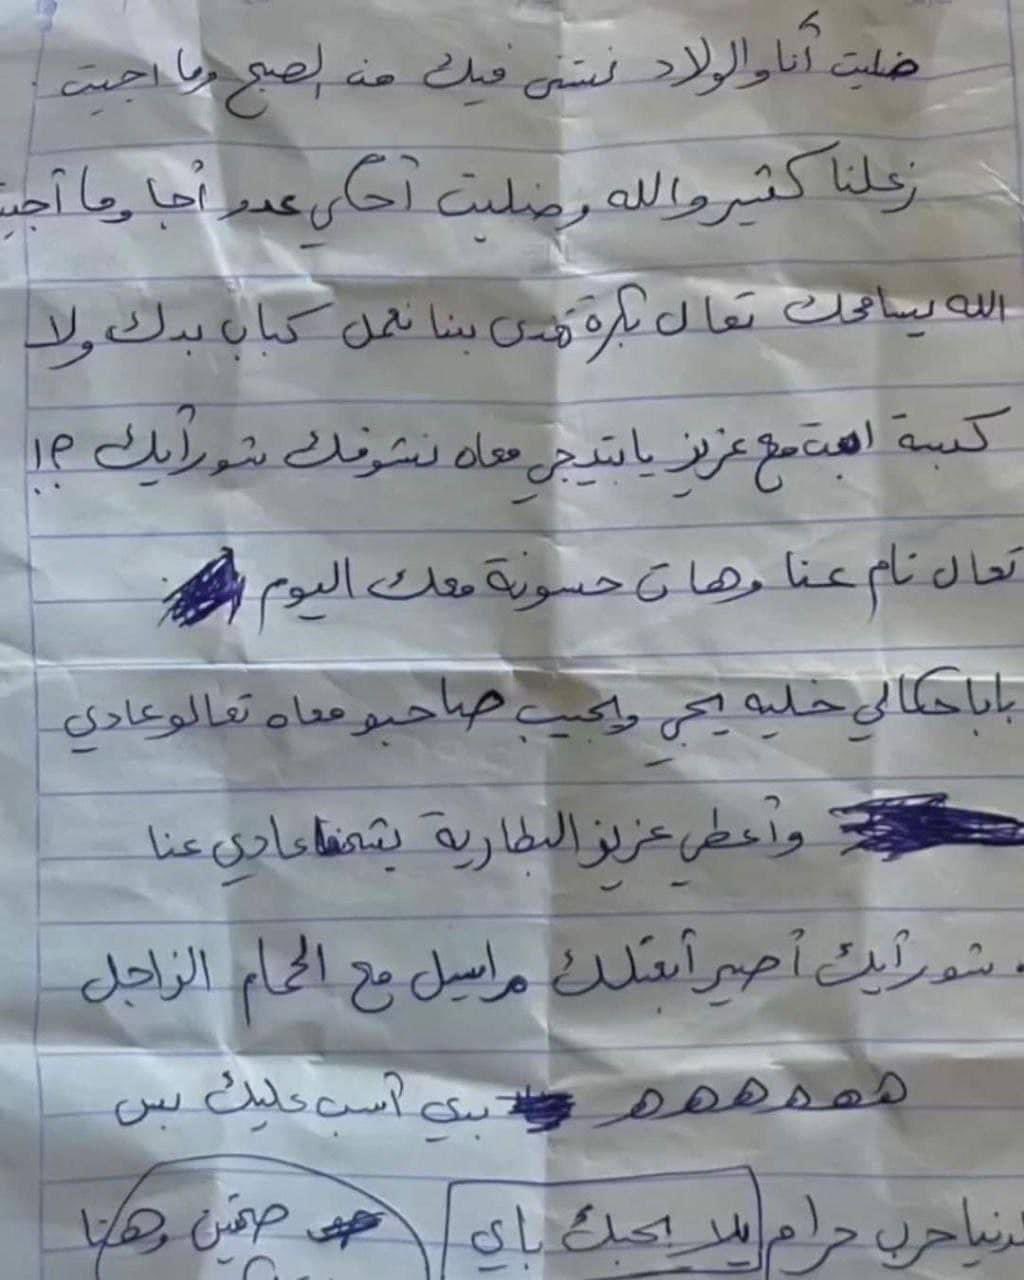 ضليت أنا والولاد نستنى فيك من الصبح وما اجيت .
زعلنا كثير والله وضليت أحكي عدو أجا وما أجيت
الله يسامحك تعال بكرة تغدى بينا نعمل كباب بدك ولا
كبة ابعت مع عزيز يا بتيجي معاه نشوفك شو رأيك ؟!
تعال نام عنا وهات حسونة معك اليوم
بابا حكالي خليه يجي ويجيب صاحبو معاه تعالو عادي
وأعطي عزيز البطارية يشحنها عادي عنا
شو رأيك أصير أبعتلك مراسيل مع الحمام الزاجل
ههههههه بدي أسب عليك بس
الدنيا حرب حرام يلا بحبك باي
صحتين وهنا